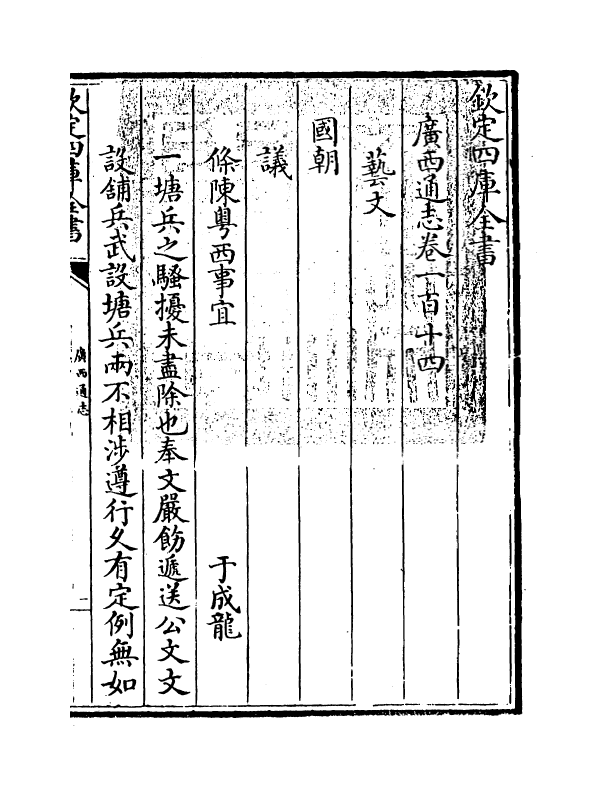 欽定四庫全書
廣西通志卷一百十四
藝文
國朝
議
條陳粵西事宜 于成龍
一塘兵之騷擾未盡除也奉文嚴飭遞送公文文
設舖兵武設塘兵兩不相涉遵行久有定例無如
欽定四庫全書
廣西通志